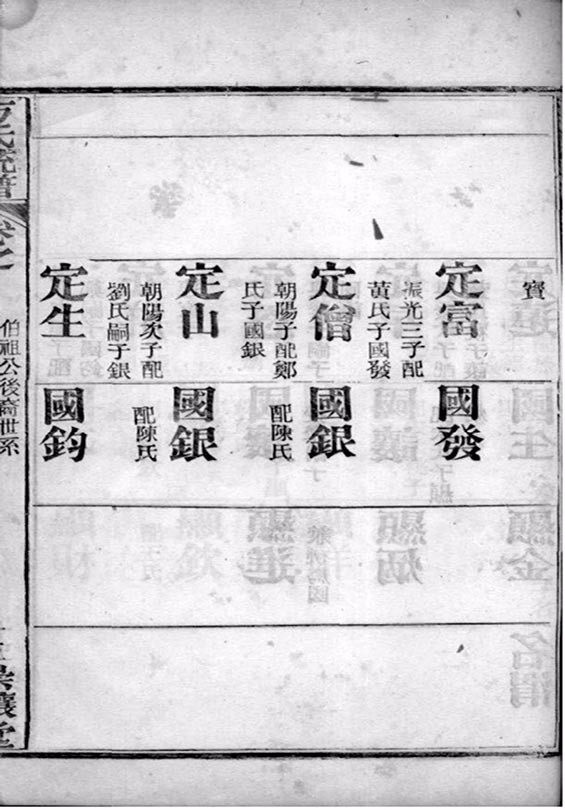 寶
定富
振光三子配
黃氏子國發
國發
定僧
朝陽子配鄭
氏子國銀
國銀
配陳氏
定山
朝陽次子配
劉氏嗣子銀
國銀
配陳氏
定生
國鈞
方氏統譜
卷之
伯祖公後裔世系